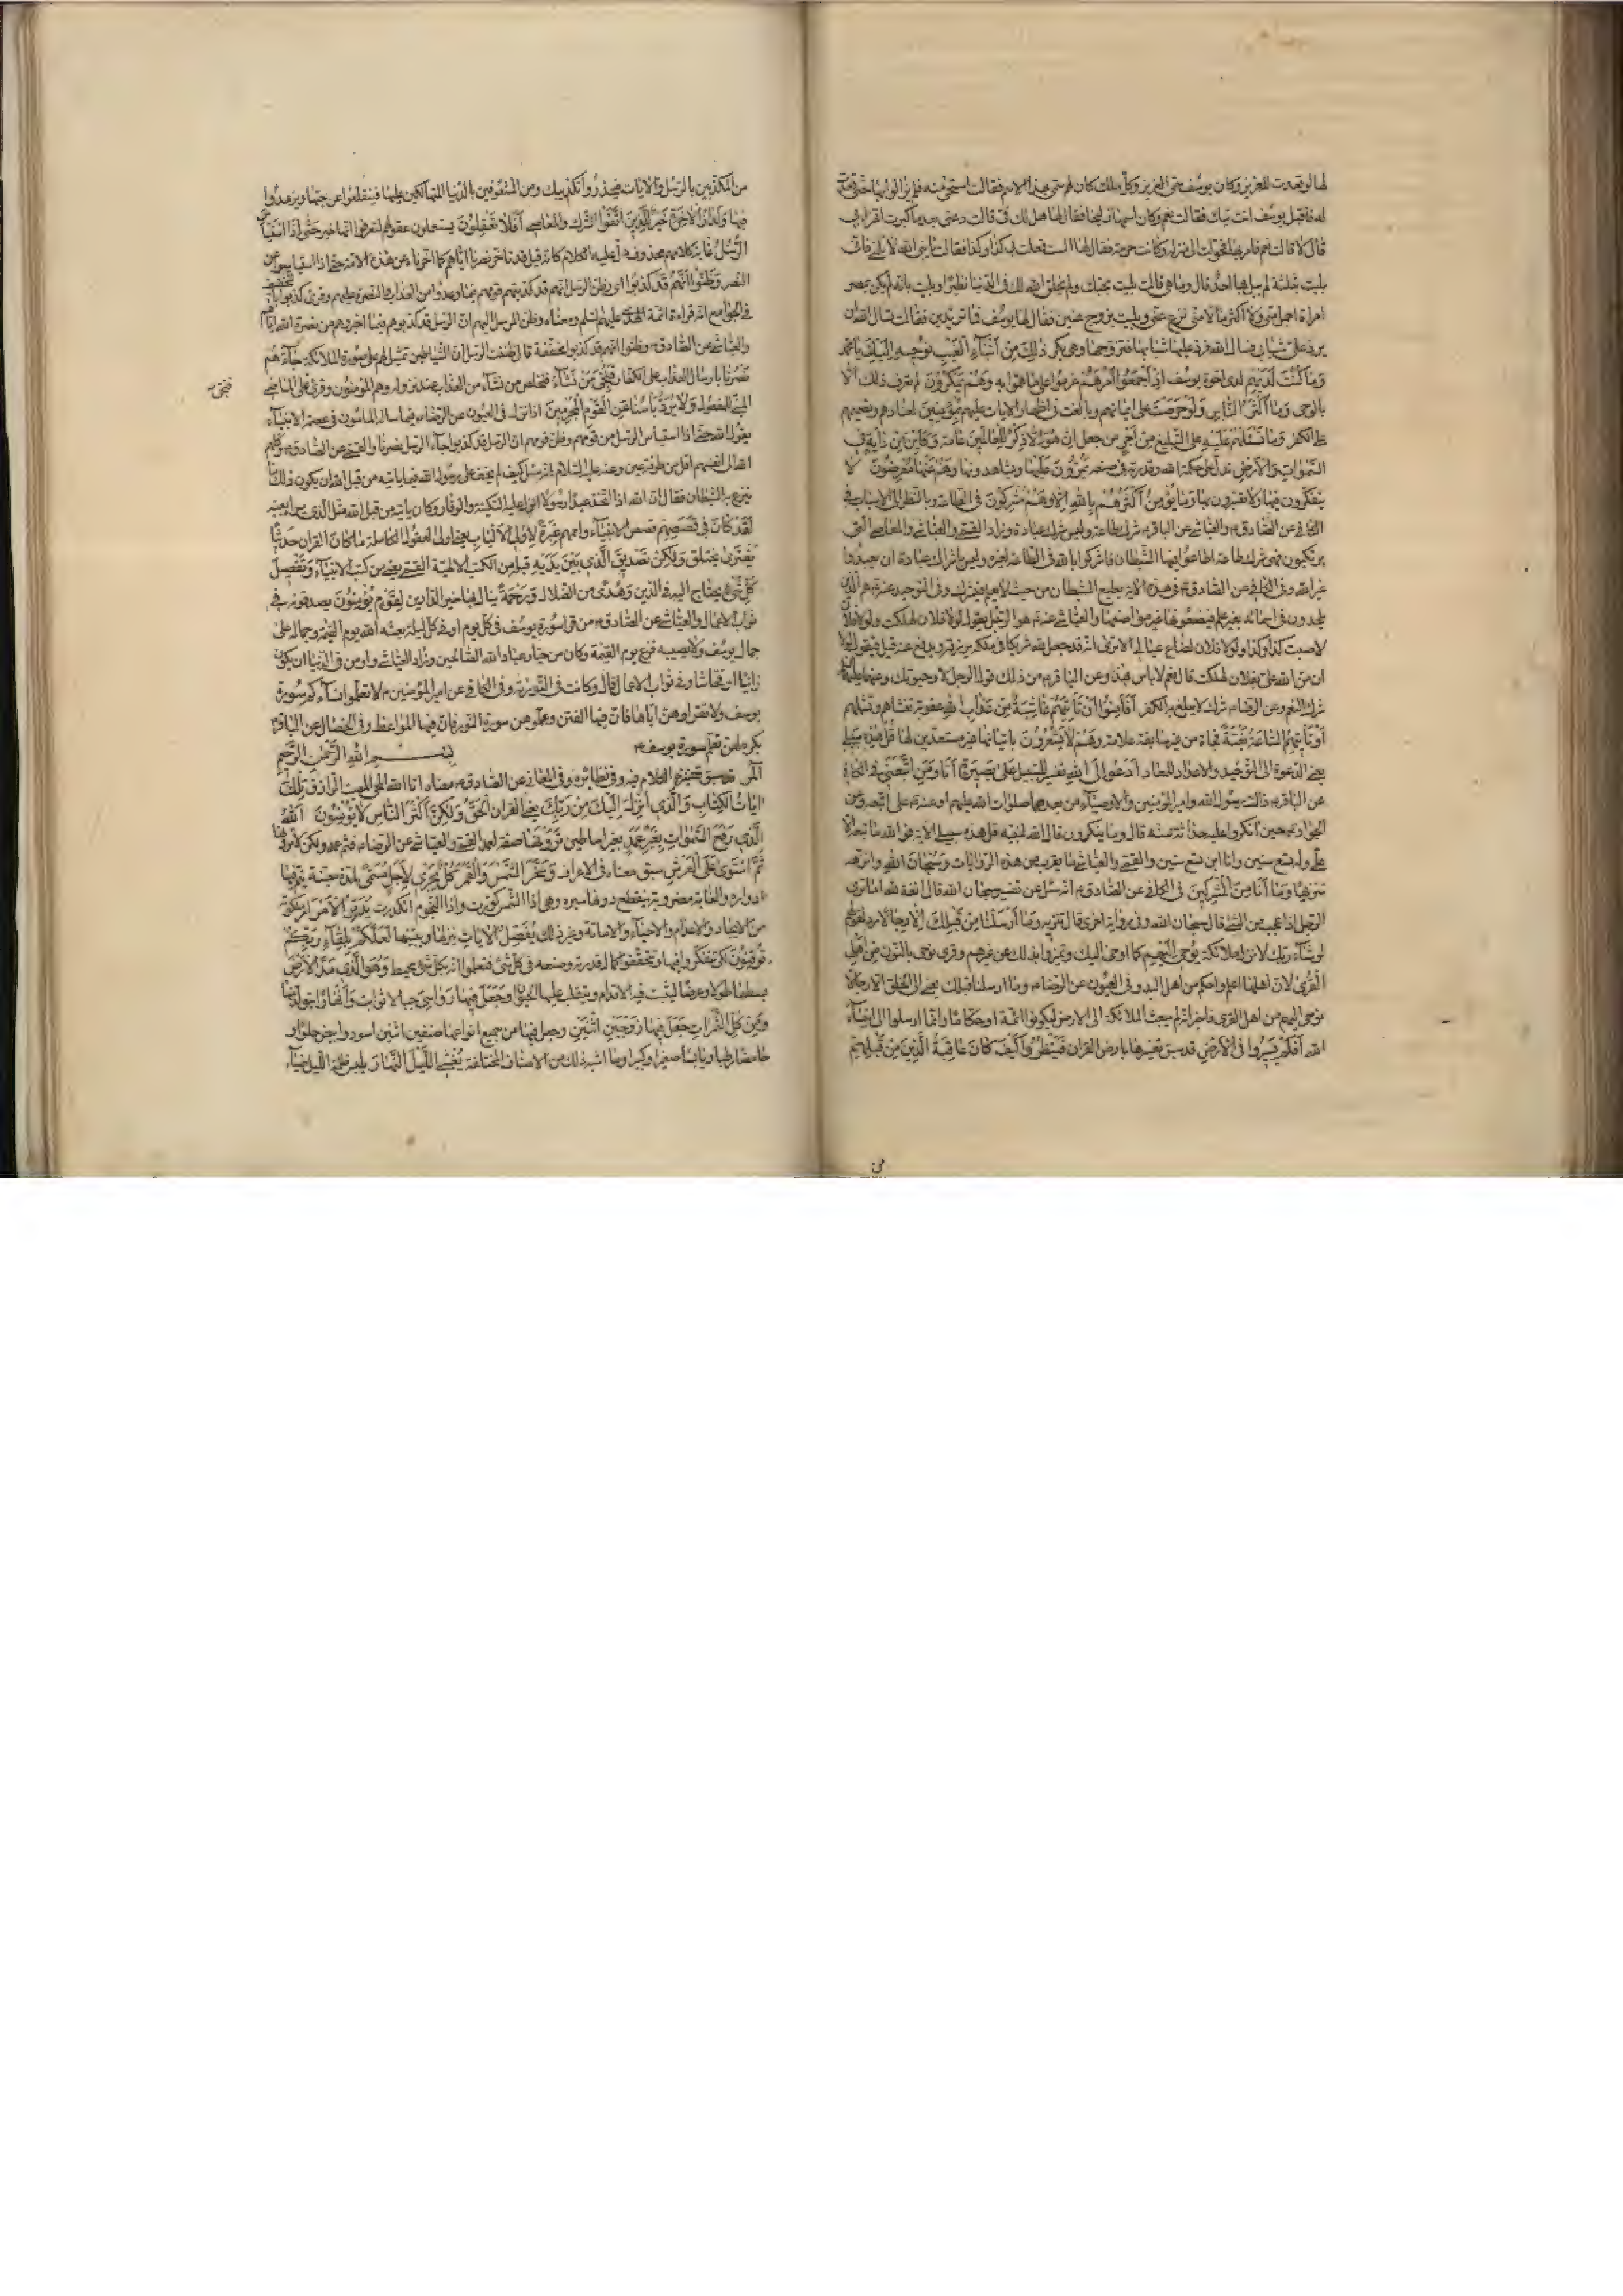 لها لو قعدت للعزيز وكان يوسف يسمى العزيز وكل ملك كان لهم سمى بهذا الاسم فقالت استحيى منه فلم يزالوا بها حتى قعدت
له فاقبل يوسف فقالت نعم وكان اسمها زليخا فقال لها هل لك في قالت دعني بعد ما كبرت اتهزأ بي
قال لا قالت نعم فامر بها فحولت الى منزله وكانت هرمة فقال لها الست فعلت بي كذا وكذا فقالت يا نبي الله لا تلمني فاني
بليت بثلثة لم يبل بها احد قال وما هي قالت بليت بحبك ولم يخلق الله لك في الدنيا نظيرا وبليت بانه لم يكن بمصر
امراة اجمل مني ولا اكثر مالا مني نزع عني وبليت بزوج عنين فقال لها يوسف فما تريدين فقالت تسال الله ان
يرد علي شبابي فسال الله فرد عليها شبابها فتزوجها وهي بكر ذلك من انباء الغيب نوحيه اليك يا محمد
وما كنت لديهم لدى اخوة يوسف اذ اجمعوا امرهم عزموا على ما هموا به وهم يمكرون لم تعرف ذلك الا
بالوحي وما اكثر الناس ولو حرصت على ايمانهم وبالغت في اظهار الايات عليهم بمؤمنين لعنادهم وتصميمهم
على الكفر وما تسئلهم عليه على التبليغ من اجر من جعل ان هو الا ذكر للعالمين عامة وكاين من اية في
السموات والارض تدل على حكمة الله وقدرته في صنعه يمرون عليها ويشاهدونها وهم عنها معرضون لا
يتفكرون فيها ولا يعتبرون بها وما يؤمن اكثرهم بالله الا وهم مشركون في الطاعة وبالنظر الى الاسباب في
الكافي عن الصادق ع والعياشي عن الباقر ع شرك طاعة وليس شرك عبادة وزاد القمي والعياشي والمعاصي التي
يرتكبون فهي شرك طاعة اطاعوا فيها الشيطان فاشركوا بالله في الطاعة لغيره وليس باشراك عبادة ان يعبدوا
غير الله وفي الكافي عن الصادق ع في هذه الاية يطيع الشيطان من حيث لا يعلم فيشرك وفي التوحيد عنه ع هم الذين
يلحدون في اسمائه بغير علم فيضعونها غير مواضعها والعياشي عنه ع هو الرجل يقول لولا فلان لهلكت ولولا فلان
لاصبت كذا وكذا ولولا فلان لضاع عيالي الا ترى انه قد جعل لله شريكا في ملكه يرزقه ويدفع عنه قيل فيقول لولا
ان من الله علي بفلان لهلكت قال نعم لا باس بهذا وعن الباقر ع من ذلك قول الرجل لا وحيوتك وعنهما عليهما السلام
شرك النعم وعن الرضا ع شرك لا يبلغ به الكفر افامنوا ان تاتيهم غاشية من عذاب الله عقوبة تغشاهم وتشملهم
او تاتيهم الساعة بغتة فجاة من غير سابقة علامة وهم لا يشعرون باتيانها غير مستعدين لها قل هذه سبيلي
يعني الدعوة الى التوحيد والاعداد للمعاد ادعوا الى الله تفسير للسبيل على بصيرة انا ومن اتبعني في الكافي
عن الباقر ع ذاك رسول الله وامير المؤمنين والاوصياء من بعدهما صلوات الله عليهم
الجواد ع حين انكروا عليه حداثة سنه قال وما ينكرون قال الله لنبيه قل هذه سبيلي الاية فو الله ما تبعه الا
علي وله تسع سنين وانا ابن تسع سنين والقمي والعياشي ما يقرب من هذه الروايات وسبحان الله وانزهه
تنزيها وما انا من المشركين في الكافي عن الصادق ع انه سئل عن تفسير سبحان الله قال انفة لله اما ترى
الرجل اذا عجب من الشي قال سبحان الله وفي رواية اخرى قال تنزيه وما ارسلنا من قبلك الا رجالا رد لقولهم
لو شاء ربك لانزل ملائكة يوحى اليهم كما اوحي اليك وتميزوا بذلك عن غيرهم وقرئ نوحي بالنون من اهل
القرى لان اهلها اعلم واحلم من اهل البدو وفي العيون عن الرضا ع وما ارسلنا قبلك يعني الى الخلق الا رجالا
نوحي اليهم من اهل القرى فاخبر انه لم يبعث الملائكة الى الارض ليكونوا ائمة او حكاما وانما ارسلوا الى انبياء
الله افلم يسيروا في الارض قد سبق تفسيرها بارض القران فينظروا كيف كان عاقبة الذين من قبلهم
من
من المكذبين بالرسل والايات فيحذروا تكذيبك ومن المشعوفين بالدنيا المتهالكين عليها فينقلعوا عن حبها ويزهدوا
فيها ولدار الاخرة خير للذين اتقوا الشرك والمعاصي افلا تعقلون يستعملون عقولهم ليعرفوا انها خير حتى اذا استيأس
الرسل غاية كلام محذوف دل عليه الكلام كانه قيل قد تاخر نصرنا اياهم كما اخرناه عن هذه الامة حتى اذا استياسوا عن
النصر وظنوا انهم قد كذبوا اي وظن الرسل انهم قد كذبتهم قومهم فيما وعدوا من العذاب والنصرة عليهم وقرئ كذبوا بالتخفيف
في الجوامع انه قراءة ائمة الهدى عليهم السلم ومعناه وظن المرسل اليهم ان الرسل قد كذبوهم فيما اخبروهم من نصرة الله اياهم
والعياشي عن الصادق ع وظنوا انهم قد كذبوا مخففة قال ظنت الرسل ان الشياطين تمثل لهم على صورة الملائكة جاءهم
نصرنا بارسال العذاب على الكفار فنجي من نشاء فنخلص من نشاء من العذاب عند نزوله وهم المؤمنون وقرئ على الماضي
فنجي
المبني للمفعول ولا يرد باسنا عن القوم المجرمين اذا نزل في العيون عن الرضا ع فيما ساله المامون في عصمة الانبياء
يقول الله حتى اذا استياس الرسل من قومهم وظن قومهم ان الرسل قد كذبوا جاء الرسل نصرنا والقمي عن الصادق ع وكلهم
الله الى انفسهم اقل من طرفة عين وعنه عليه السلام انه سئل كيف لم يخف رسول الله فيما ياتيه من قبل الله ان يكون ذلك مما
ينزغ به الشيطان فقال ان الله اذا اتخذ عبدا رسولا انزل عليه السكينة والوقار وكان ياتيه من قبل الله مثل الذي يراه بعينه
لقد كان في قصصهم قصص الانبياء واممهم عبرة لاولي الالباب لاولي العقول الكاملة ما كان القران حديثا
يفترى يختلق ولكن تصديق الذي بين يديه قبله من الكتب الالهية القمي يعني من كتب الانبياء وتفصيل
كل شيء يحتاج اليه في الدين وهدى من الضلال ورحمة ينال بها خير الدارين لقوم يؤمنون يصدقونه في
ثواب الاعمال والعياشي عن الصادق ع من قرا سورة يوسف في كل يوم او في كل ليلة بعثه الله يوم القيمة وجماله على
جمال يوسف ولا يصيبه فزع يوم القيمة وكان من خيار عباد الله الصالحين وزاد العياشي واومن في الدنيا ان يكون
زانيا او فحاشا وفي ثواب الاعمال قال وكانت في التورية وفي الكافي عن امير المؤمنين ع لا تعلموا نساءكم سورة
يوسف ولا تقراوهن اياها فان فيها الفتن وعلموهن سورة النور فان فيها المواعظ وفي الخصال عن الباقر ع
يكره لهن تعلم سورة يوسف ع بسم الله الرحمن الرحيم
المر قد سبق تحقيق الكلام فيه وفي نظائره وفي المعاني عن الصادق ع معناه انا الله المحيي المميت الرازق تلك
ايات الكتاب والذي انزل اليك من ربك يعني القران الحق ولكن اكثر الناس لا يؤمنون الله
الذي رفع السموات بغير عمد بغير اساطين ترونها صفة لعمد القمي والعياشي عن الرضا ع فثم عمد ولكن لا ترونها
ثم استوى على العرش سبق معناه في الاعراف وسخر الشمس والقمر كل يجري لاجل مسمى لمدة معينة يتم فيها
ادواره ولغاية مضروبة ينقطع دونها سيره وهي اذا الشمس كورت واذا النجوم انكدرت يدبر الامر امر ملكوته
من الايجاد والاعدام والاحياء والاماتة وغير ذلك يفصل الايات ينزلها ويبينها لعلكم بلقاء ربكم
توقنون لكي تتفكروا فيها وتتحققوا كمال قدرته وصنعه في كل شيء فتعلموا انه بكل شيء محيط وهو الذي مد الارض
بسطها طولا وعرضا ليثبت فيه الاقدام ويتقلب عليها الحيوان وجعل فيها رواسي جبالا ثوابت وانهارا تتولد منها
ومن كل الثمرات جعل فيها زوجين اثنين وجعل فيها من جميع انواعها صنفين اثنين اسود وابيض حلوا و
حامضا رطبا ويابسا صغيرا وكبيرا وما اشبه ذلك من الاصناف المختلفة يغشي الليل النهار يلبس ظلمة الليل ضياء